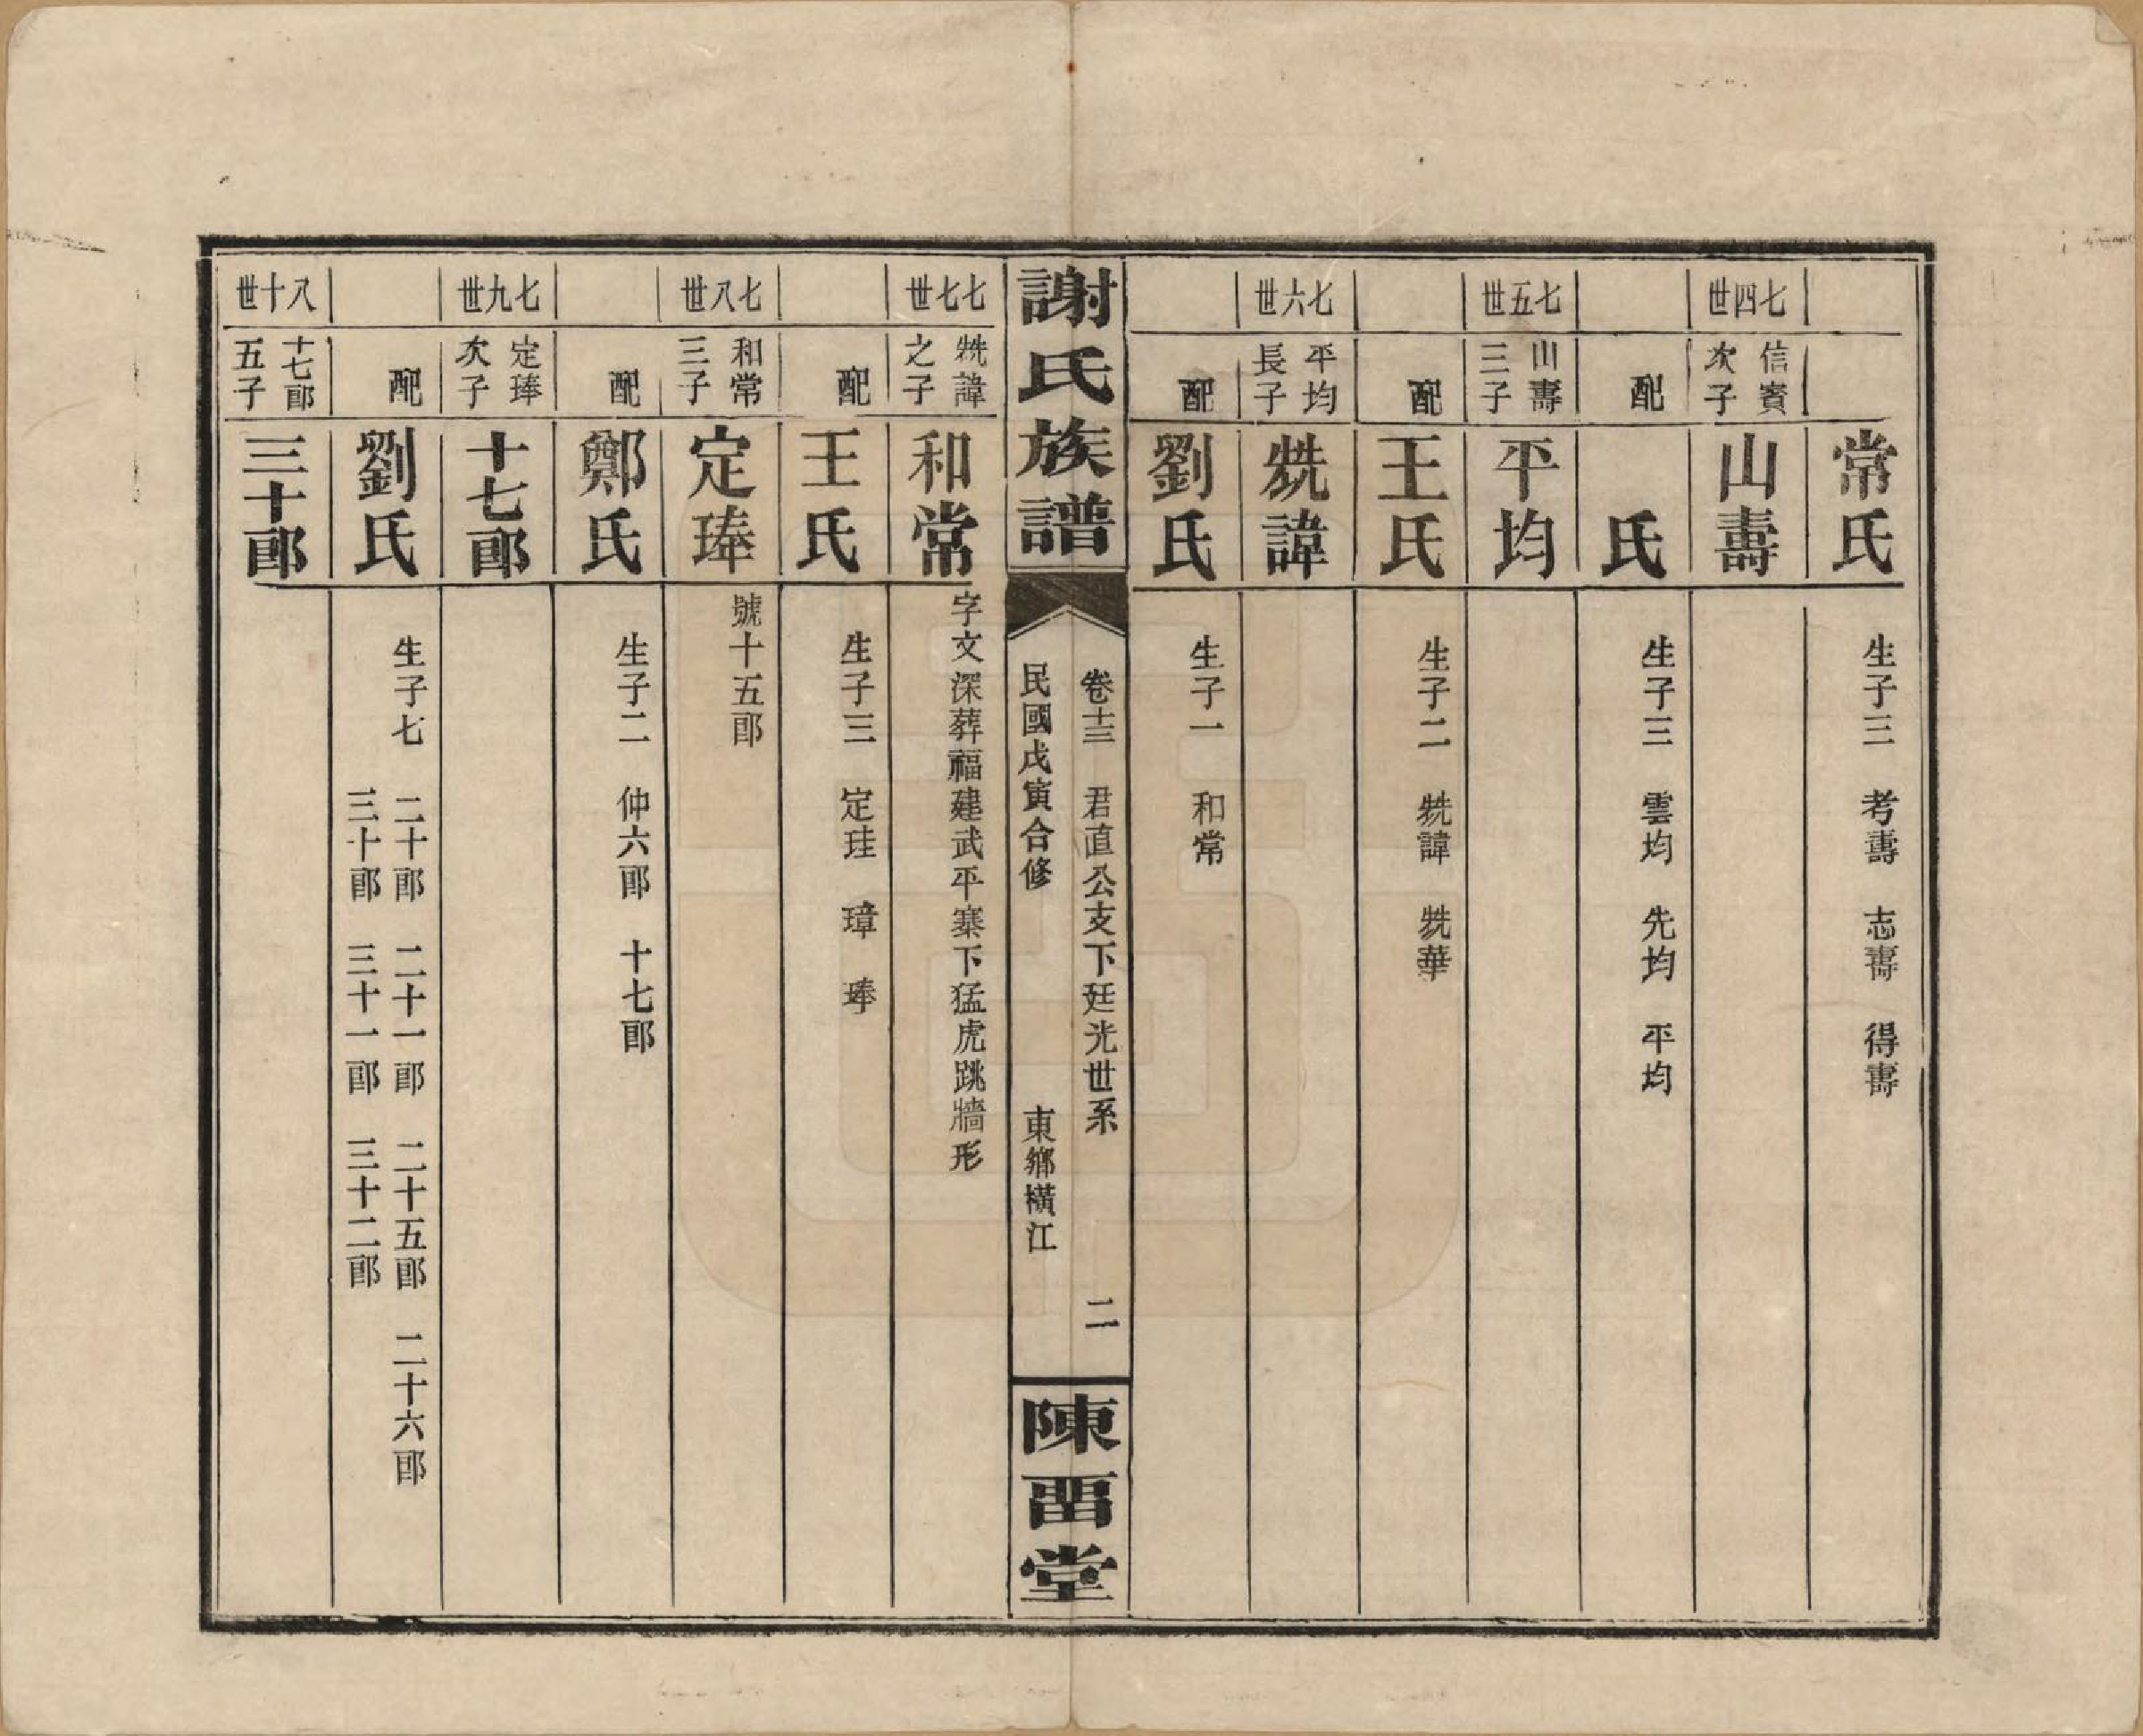 常氏
生子三 考壽 志壽 得壽
七四世
信賓次子
山壽
配
氏
生子三 雲均 先均 平均
七五世
山壽三子
平均
配
王氏
生子二 㹡諱 㹡華
七六世
平均長子
㹡諱
配
劉氏
生子一 和常
謝氏族譜
卷十三 君直公支下廷光世系 二
民國戊寅合修 東鄉橫江
陳畱堂
七七世
㹡諱之子
和常
字文深葬福建武平寨下猛虎跳牆形
配
王氏
生子三 定珪 璋 琫
七八世
和常三子
定琫
號十五郎
配
鄭氏
生子二 仲六郎 十七郎
七九世
定琫次子
十七郎
配
劉氏
生子七 二十郎 二十一郎 二十五郎 二十六郎
三十郎 三十一郎 三十二郎
八十世
十七郎五子
三十郎